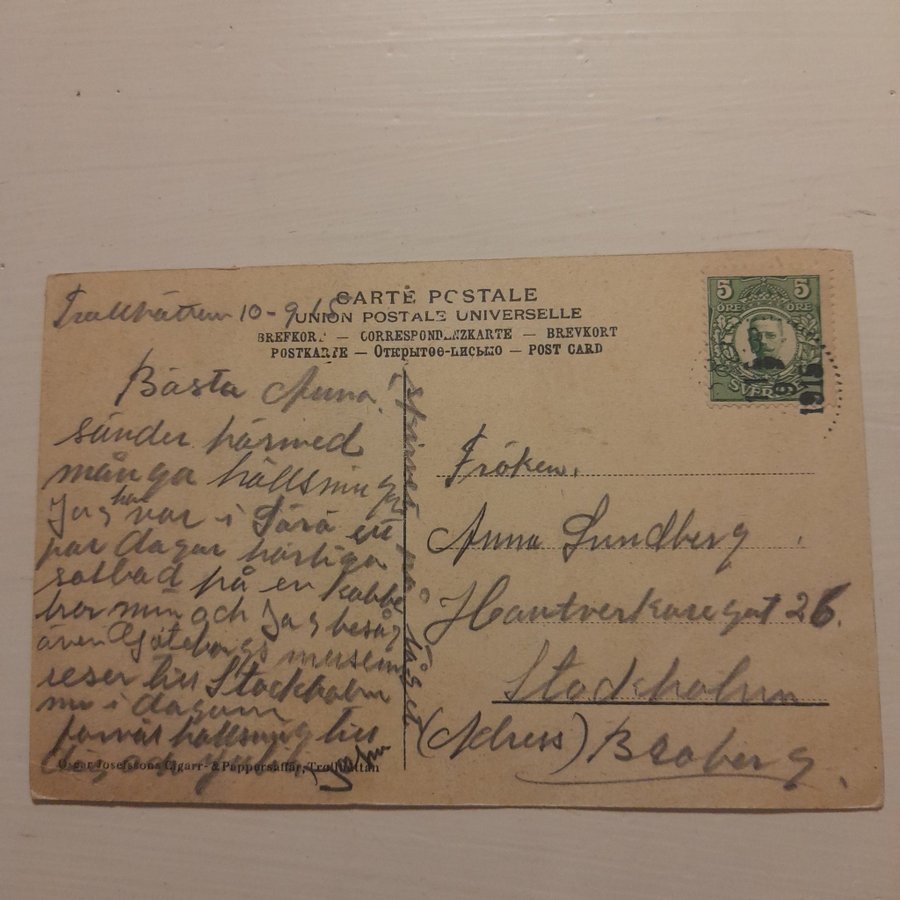 Trollhättan 10-9 15
CARTE POSTALE
UNION POSTALE UNIVERSELLE
BREFKORT — CORRESPONDENZKARTE — BREVKORT
POSTKARTE — Открытое-письмо — POST CARD
5 5
ÖRE ÖRE
SVERIGE
1915
Bästa Anna!
sänder härmed
många hällsningar
Jag har var i Särö ett
par dagar härliga
solbad på en kobbe
bror min och Jag besåg
även Göteborgs museum
reser till Stockholm
nu i dagarna
hällsning till
John
skrivet på tåget
Fröken,
Anna Lundberg
Hantverkaregat 26.
Stockholm
(Adress) Broberg.
Oscar Josefssons Cigarr- & Pappersaffär, Trollhättan